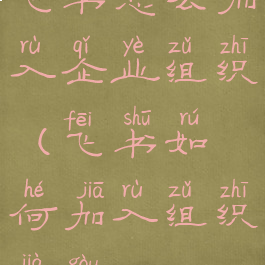 飞书怎么加
rù qǐ yè zǔ zhī
入企业组织
fēi shū rú
(飞书如
hé jiā rù zǔ zhī
何加入组织
jià gòu